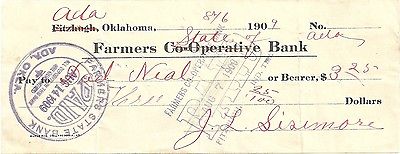 Ada
Fitzhugh, Oklahoma, 8/6 1909 No.
State of Ada
Farmers Co-Operative Bank
Pay to Ed Neal or Bearer, $3.25
Three 25/100 Dollars
J. L. Sisemore
FARMERS STATE BANK
ADA, OKLA.
PAID
FARMERS CO-OPERATIVE
PAID
AUG 7 1909